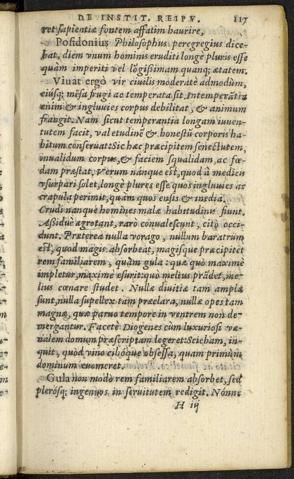 DE INSTIT. REIPV. 117
ret sapientiæ fontem affatim haurire.
Posidonius Philosophus peregregius dice-
bat, diem vnum hominis eruditi longè pluris esse
quàm imperiti vel lõgissimam quanq; ætatem.
Viuat ergò vir ciuilis moderatè admodùm,
eiúsq; mẽsa frugi ac temperata sit. Intemperãtia
enim & ingluuies corpus debilitat, & animum
frangit. Nam sicut temperantia longam iuuen-
tutem facit, valetudinẽ & honestũ corporis ha-
bitum conseruat: Sic hæc præcipitem senectutem,
inualidum corpus, & faciem squalidam, ac fœ-
dam præstat. Verum nanque est, quod à medicis
vsurpari solet, longè plures esse quos ingluuies ac
crapula perimit, quàm quos ensis & inedia.
Crudi nanque homines malæ habitudinis fiunt.
Assiduè ægrotant, rarò conualescunt, citò occi-
dunt. Præterea nulla vorago, nullum baratrum
est, quod magis absorbeat, magísque præcipitet
rem familiarem, quàm gula: quæ quò maximè
impletur, maximè esuritióq; melius prãdet, me-
lius cœnare studet. Nullæ diuitiæ tam amplæ
sunt, nulla supellex tàm præclara, nullæ opes tam
magnæ, quæ paruo tempore in ventrem non de-
mergantur. Facetè Diogenes cùm luxuriosi væ-
nalem domum præscriptam legeret: Scibam, in-
quit, quòd vino cibóque obsessa, quàm primùm
dominum euomeret.
Gula non modò rem familiarem absorbet, sed
plerósq; ingenuos in seruitutem redigit. Nónne
H iij